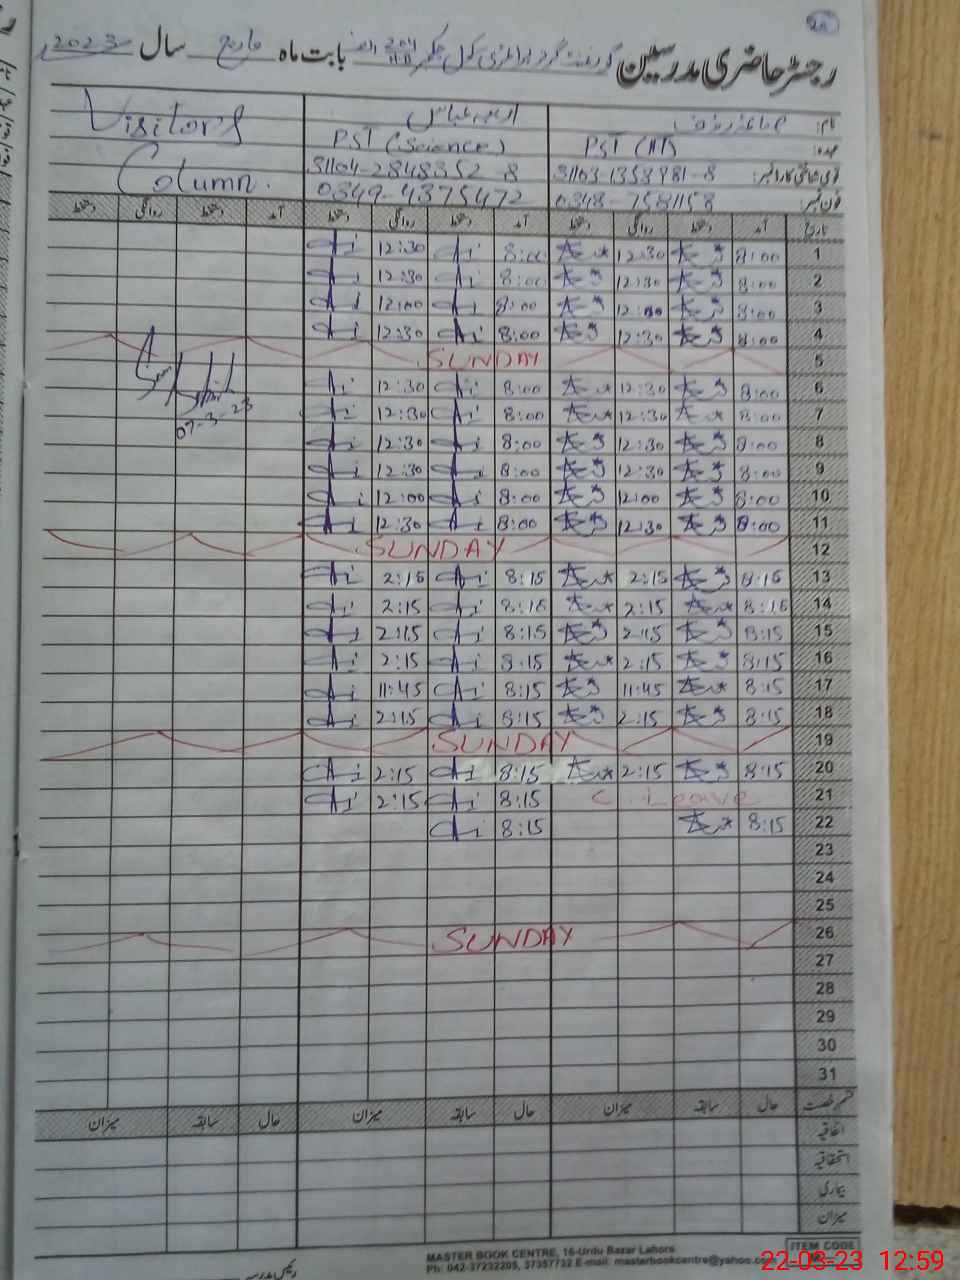 2023 سال مارچ بابت ماہ رجسٹر حاضری مدرسین
Visitors
Column.
نام:
PST (Science) PST (HT) عہدہ:
31104-2848352-8 قومی شناختی کارڈ نمبر:
0349-4375472 0348-7581158 فون نمبر:
دستخط روانگی دستخط آمد دستخط روانگی دستخط آمد دستخط روانگی دستخط آمد تاریخ
12:30 8:00 12:30 8:00 1
12:30 8:00 12:30 8:00 2
12:00 8:00 12:00 8:00 3
12:30 8:00 12:30 8:00 4
SUNDAY 5
12:30 8:00 12:30 8:00 6
07-3-23 12:30 8:00 12:30 8:00 7
12:30 8:00 12:30 8:00 8
12:30 8:00 12:30 8:00 9
12:00 8:00 12:00 8:00 10
12:30 8:00 12:30 8:00 11
SUNDAY 12
2:15 8:15 2:15 8:15 13
2:15 8:15 2:15 8:15 14
2:15 8:15 2:15 8:15 15
2:15 8:15 2:15 8:15 16
11:45 8:15 11:45 8:15 17
2:15 8:15 2:15 8:15 18
SUNDAY 19
2:15 8:15 2:15 8:15 20
2:15 8:15 C. Leave 21
8:15 8:15 22
23
24
25
SUNDAY 26
27
28
29
30
31
میزان سابقہ حال میزان سابقہ حال میزان سابقہ حال قسم رخصت
اتفاقیہ
استحقاقیہ
بیماری
میزان
ITEM CODE
MASTER BOOK CENTRE, 16-Urdu Bazar Lahore
Ph: 042-37232205, 37357732 E-mail: masterbookcentre@yahoo.com
رئیس مدرسہ
22-03-23 12:59